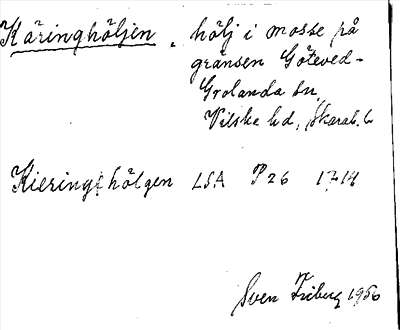 Käringhöljen, hölj i mosse på
gränsen Göteved-
Grolanda sn,
Vilske hd, Skarab. l.
Kierings hölgen LSA P26 1714
Sven Friberg 1956